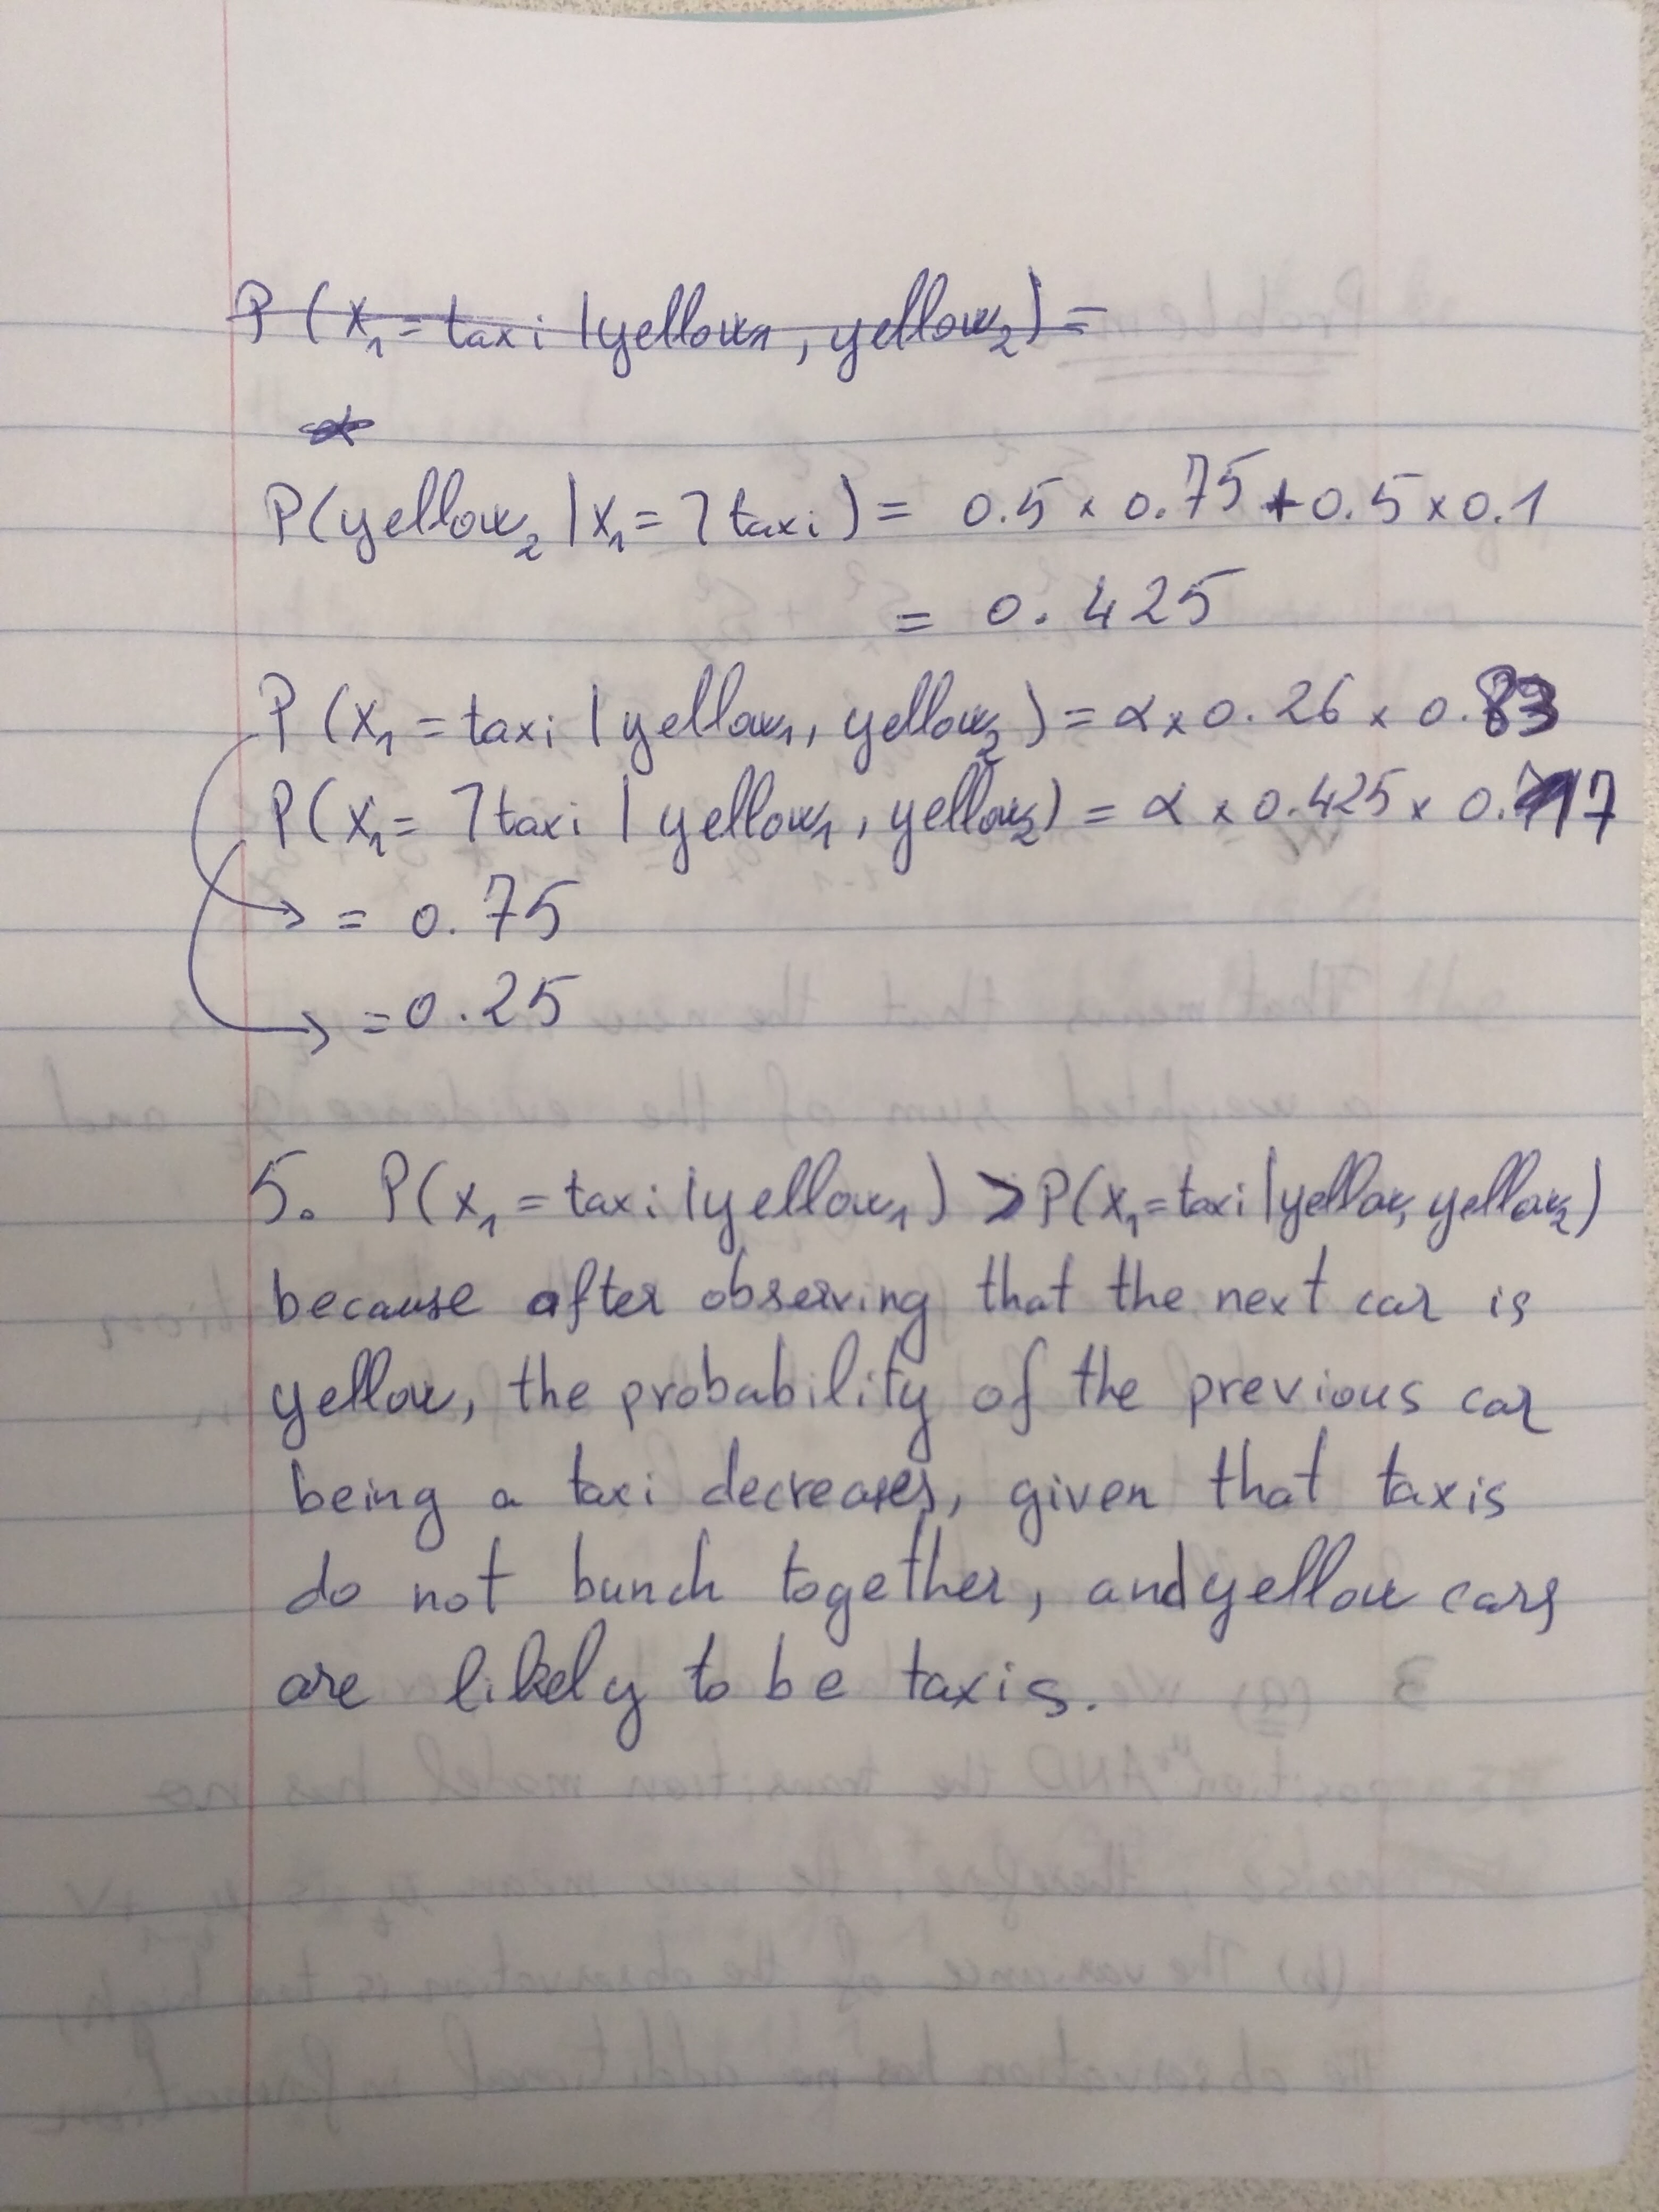 P(x₁ = taxi | yellow₁, yellow₂) =
P(yellow₂ | x₁ = ¬taxi) = 0.5 × 0.75 + 0.5 × 0.1
= 0.425
P(x₁ = taxi | yellow₁, yellow₂) = α × 0.26 × 0.83
P(x₁ = ¬taxi | yellow₁, yellow₂) = α × 0.425 × 0.17
→ = 0.75
→ = 0.25
5. P(x₁ = taxi | yellow₁) > P(x₁ = taxi | yellow₁, yellow₂)
because after observing that the next car is
yellow, the probability of the previous car
being a taxi decreases, given that taxis
do not bunch together, and yellow cars
are likely to be taxis.